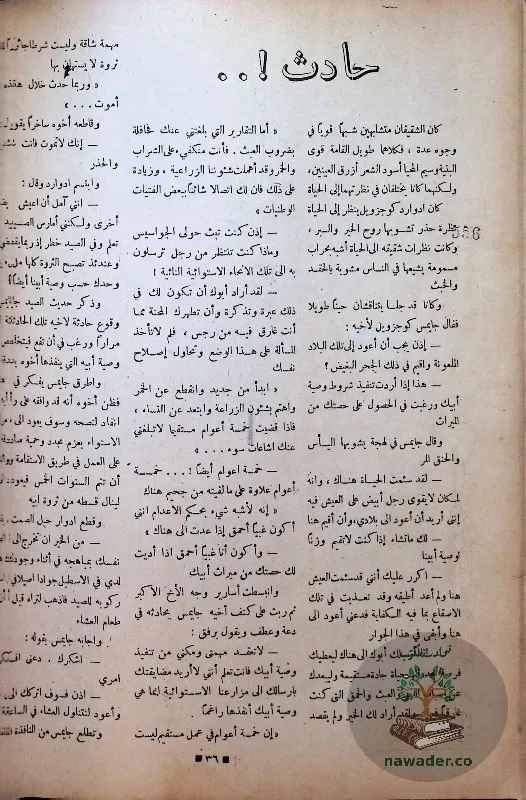 حادث ! . .
كان الشقيقان متشابهين شبهاً قوياً في
وجوه عدة ، فكلاهما طويل القامة قوى
البنية وسيم المحيا أسود الشعر أزرق العينين ،
ولكنهما كانا يختلفان في نظرتهما إلى الحياة
كان ادوارد كوجزويل ينظر إلى الحياة
نظرة حذر تشوبها روح الخير والبر ،
وكانت نظرات شقيقه الى الحياة أشبه بحراب
مسمومة يشيعها في الناس مشوبة بالحقد
والخبث
وكانا قد جلسا يتناقشان حيناً طويلا
فقال جايمس كوجزويل لأخيه :
— إذن يجب أن أعود إلى تلك البلاد
الملعونة واقيم في ذلك الجحر البغيض ؟
— هذا إذا أردت تنفيذ شروط وصية
أبيك ورغبت في الحصول على حصتك من
الميراث
وقال جايمس في لهجة يشوبها اليأس
والحنق المر
— لقد سئمت الحياة هناك ، وانه
لمكان لا يقوى رجل أبيض على العيش فيه
إنني أريد أن أعود الى بلادي ، وأن أقيم هنا
— لك ماتشاء إذا كنت لا تقيم وزناً
لوصية أبينا
— اكرر عليك أنني قد سئمت العيش
هنا ولم أعد أطيقه وقد تعذبت في تلك
الاصقاع بما فيه السكفاية فدعني أعود الى
هنا وأبقى في هذا الجوار
لك أبوك الى هناك ليعطيك
حياة جادة مستقيمة وليبعدك
العبث والحمق التي كنت
قد أراد لك الخير ولم يقصد
« أما التقارير التي بلغتني عنك فحافلة
بضروب العبث . فأنت منكفىء على الشراب
والخمر وقد أهملت شئوننا الزراعية ، وزيادة
على ذلك فان لك اتصالا شائناً ببعض الفتيات
الوطنيات »
— إذن كنت تبث حولى الجواسيس
وماذا كنت تنتظر من رجل ترسلون
به الى تلك الانحاء الاستوائية النائية !
— لقد أراد أبوك أن تكون لك في
ذلك عبرة وتذكرة وأن تطهرك المحنة مما
أنت غارق فيه من رجس ، فلم لا تأخذ
المسألة على هذا الوضع وتحاول إصلاح
نفسك
« ابدأ من جديد وانقطع عن الخمر
واهتم بشئون الزراعة وابتعد عن النساء ،
فاذا قضيت خمسة أعوام مستقيما لا تبلغني
عنك اشاعات سوء . . . »
— خمسة اعوام أيضاً ! . . . خمسة
أعوام علاوة على ما لقيته من جحيم هناك
« إنه لأشبه شيء بحكم الاعدام انني
أكون غبياً أحمق إذا عدت الى هناك »
— وأكون أنا غبياً أحمق اذا أديت
لك حصتك من ميراث أبيك
وانبسطت أسارير وجه الأخ الاكبر
ثم ربت على كتف أخيه جايمس يحادثه في
دعة وعطف ويقول برفق :
— لا تعقد مهمتى ومكني من تنفيذ
وصية أبيك فانت تعلم أنني لا أريد مضايقتك
بارسالك الى مزارعنا الاستوائية انما هي
وصية أبيك أنفذها راغماً
« إن خمسة أعوام في عمل مستقيم ليست
مهمة شاقة وليست شرطا جائراً
ثروة لا يستهان بها
« وربما حدث خلال هذه
أموت . . . »
وقاطعه أخوه ساخراً يقول
— إنك لا تموت فانت
والحذر
وابتسم ادوارد وقال :
— انني آمل أن اعيش
أخرى ولكنني أمارس الصيد
تعلم وفي الصيد خطر إذ ربما
وعندئذ تصبح الثروة كلها
وحدك حسب وصية أبينا أيضاً
وذكر حديث الصيد
وقوع حادثة لاخيه تلك الحادثة
مراراً ورغب في أن تقع فيتخلص
وصية أبيه التي ينفذها أخوه
واطرق جايمس يفكر في
فظن أخوه أنه قد وافقه على
انفاذ لنصحه وسوف يعود الى
الاستواء بعزم مجدد وحمية صادقة
على العمل في طريق الاستقامة
أن تتم السنوات الخمس فيعود
لينال قسطه من ثروة ابيه
وقطع ادوار حبل الصمت
— من الخير ان تخرج الى
نفسك بمباهجه في أثناء وجودك
لدي في الاسطبل جوادا أصيلا
ركوبه للصيد فاذهب لتراه قبل
طعام العشاء
واجابه جايمس بقوله :
— اشكرك . دعنى
امري
— اذن فسوف اتركك الى
وأعود لنتناول العشاء في الساعة
وتطلع جايمس من النافذة
٣٦
nawader.co